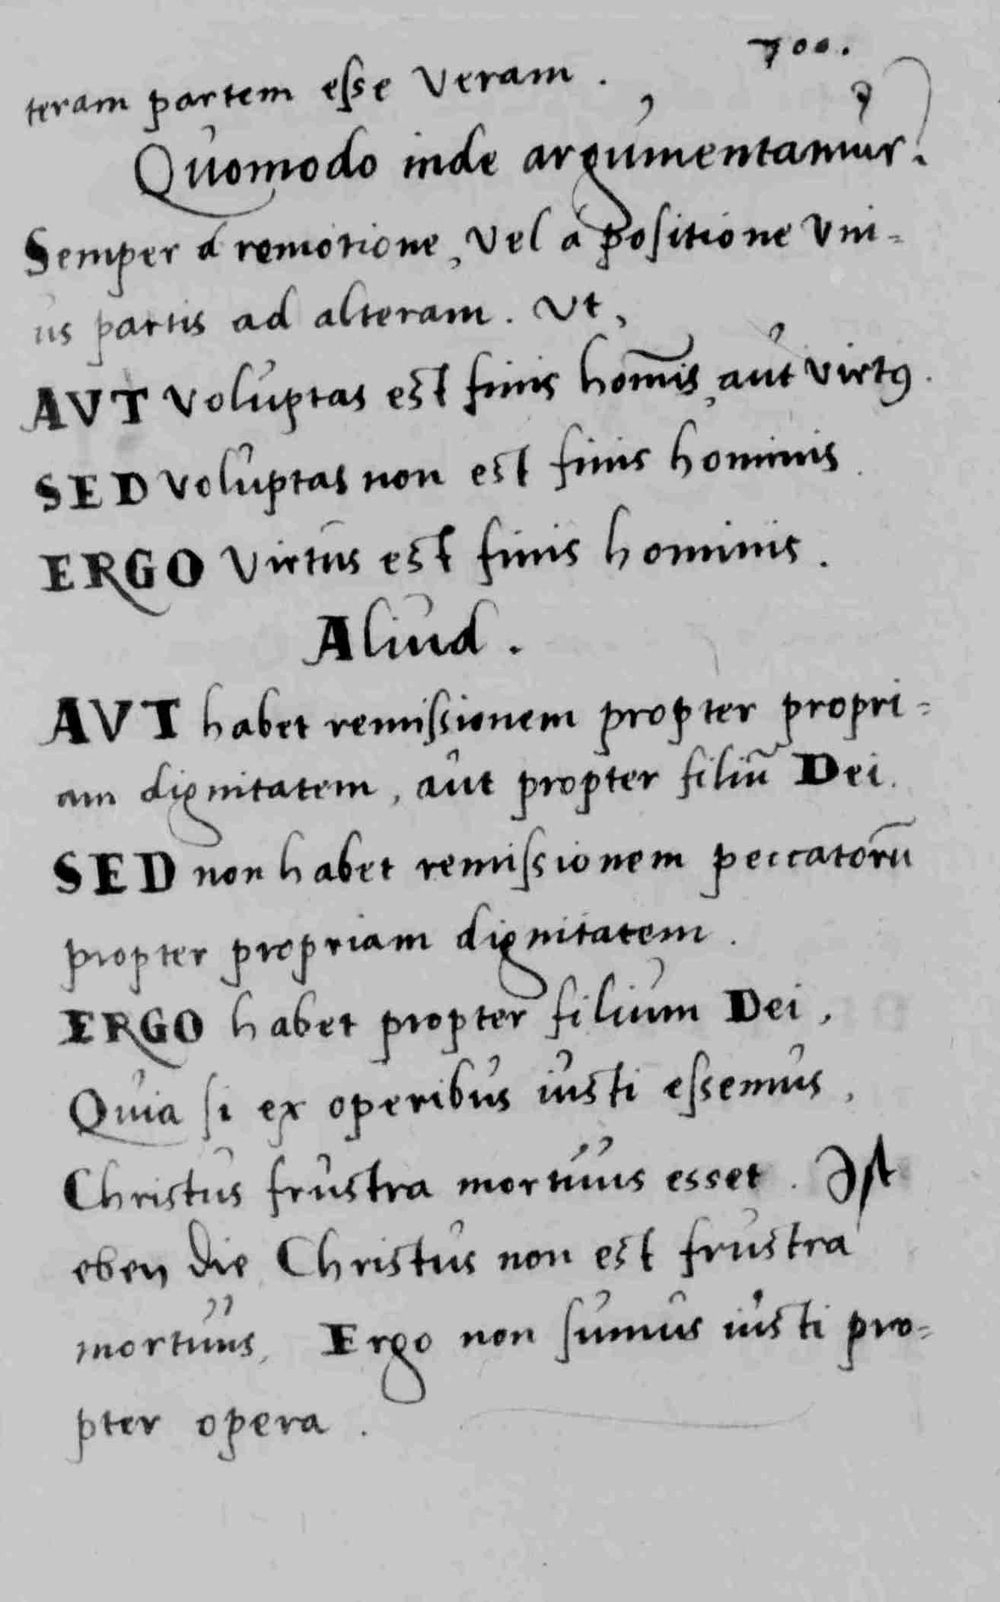 700.
teram partem esse Veram.
Quomodo inde argumentamur?
Semper á remotione, Vel á positione Vni-
us partis ad alteram. Vt,
AVT Voluptas est finis homīs, aut virtꝰ.
SED Voluptas non est finis hominis.
ERGO Virtus est finis hominis.
Aliud.
AVT habet remissionem propter propri-
am dignitatem, aut propter filiū Dei.
SED non habet remissionem peccatorū
propter propriam dignitatem.
ERGO habet propter filium Dei,
Quia si ex operibus iusti essemus,
Christus frustra mortuus esset. Ist
eben die, Christus non est frustra
mortuus, Ergo non sumus iusti pro-
pter opera.